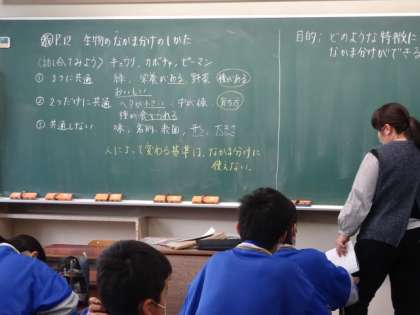 P.12 生物のなかま分けのしかた
〈話し合ってみよう〉キュウリ、カボチャ、ピーマン
① 3つに共通 緑、栄養がある、野菜 種がある
おいしい
② 2つだけに共通 ヘタが小さい 中が緑 育ち方
種が食べられる
③ 共通しない 味、名前、表面、形、大きさ
人によって変わる基準は、なかま分けに
使えない。
目的：どのような特徴に
なかま分けができる